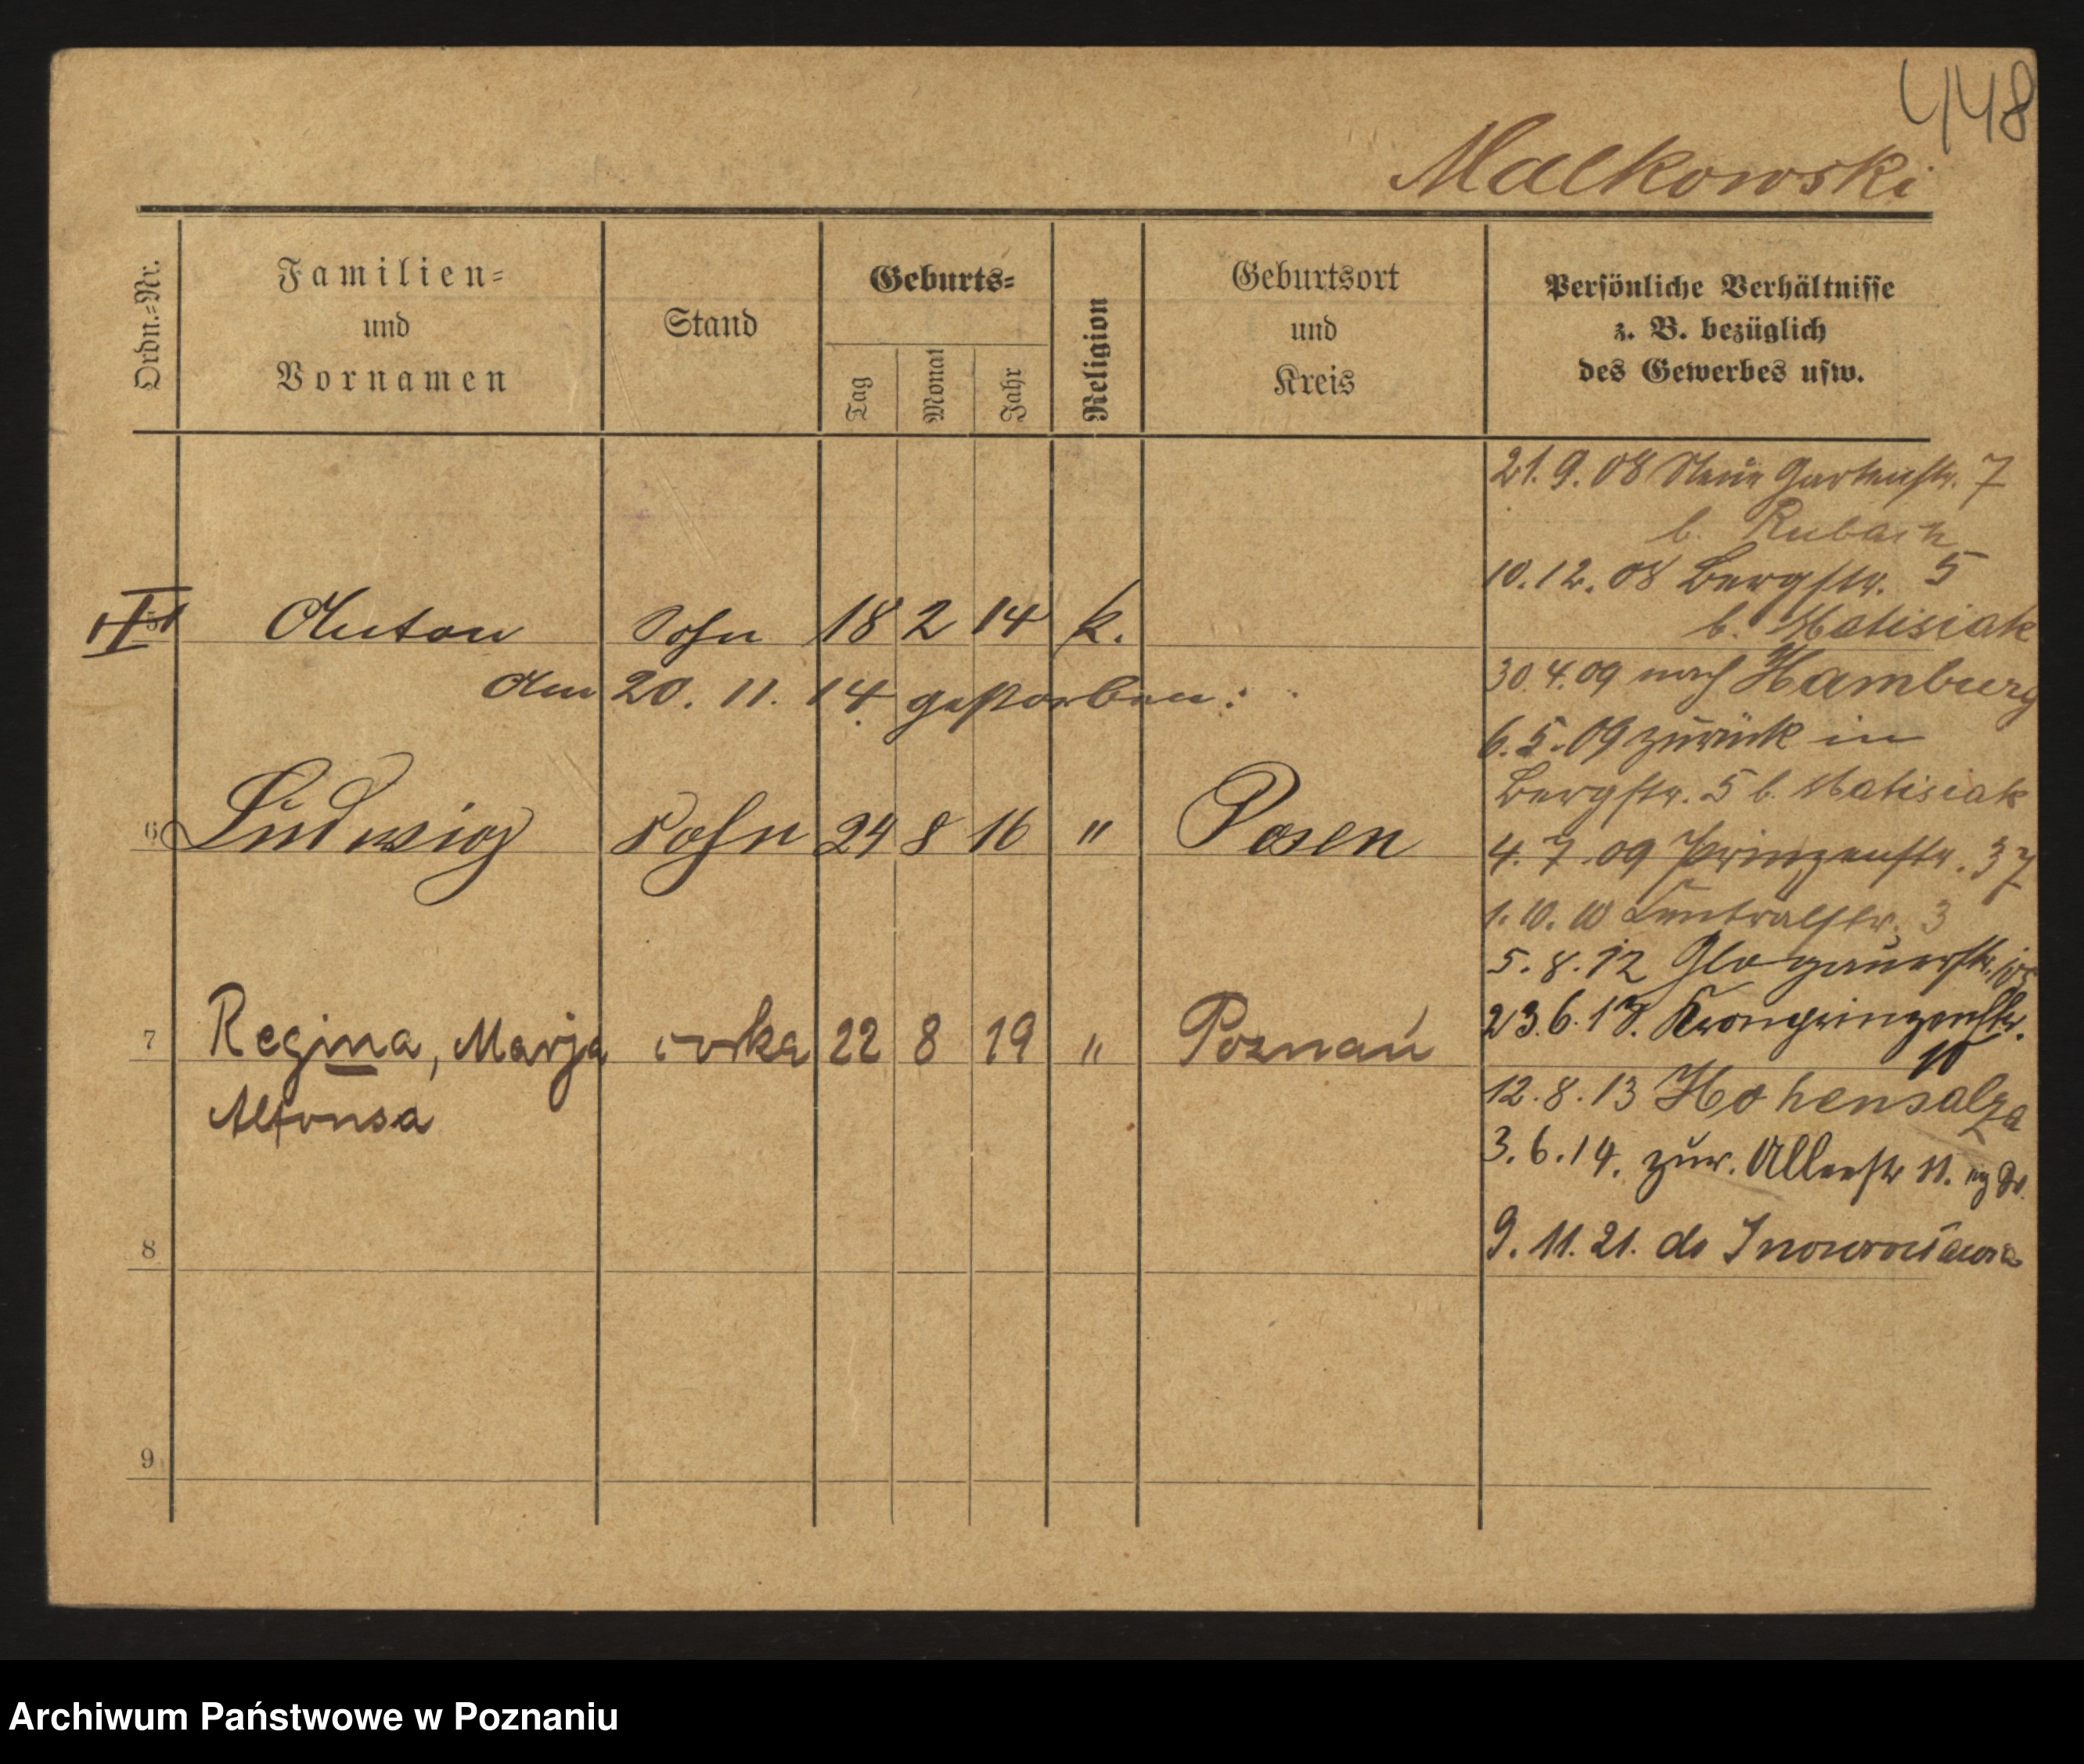 448
Malkowski
Ordn.=Nr.
Familien=
und
Vornamen
Stand
Geburts=
Tag
Monat
Jahr
Religion
Geburtsort
und
Kreis
Persönliche Verhältnisse
z. B. bezüglich
des Gewerbes usw.
21. 9. 08 Neue Gartenstr. 7
b. Rubach
10. 12. 08 Bergstr. 5
b. Matisiak
5 Anton Sohn 18 2 14 k.
30. 4. 09 nach Hamburg
Am 20. 11. 14 gestorben.
6. 5. 09 zurück in
Bergstr. 5 b. Matisiak
6 Ludwig Sohn 24 8 16 " Posen
4. 7. 09 Prinzenstr. 37
1. 10. 10 Centralstr. 3
5. 8. 12 Glogauerstr.
23. 6. 13. Kronprinzenstr.
10
7 Regina, Marja córka 22 8 19 " Poznań
Alfonsa
12. 8. 13 Hohensalza
3. 6. 14. zur. Allerstr 11.
8
9. 11. 21. do Inowrocławia
9
Archiwum Państwowe w Poznaniu